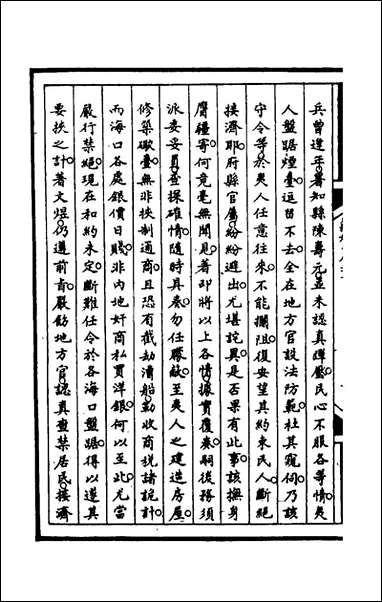 兵曾逢年。署知縣陳壽元並未認真彈壓。民心不服各等情。夷
人盤踞煙臺。逗留不去。全在地方官設法防範。杜其窺伺。乃該
守令等於夷人任意往來。不能攔阻。復安望其約束民人。斷絕
接濟耶。府縣官屬紛紛避出。尤堪詫異。是否果有此事。該撫身
膺疆寄。何竟毫無聞見。著即將以上各情。據實覆奏。嗣後務須
派委妥員。登探確情。隨時具奏。勿任朦飾。至夷人之建造房屋。
修築礮臺。無非挾制通商。且恐有截劫漕船。勒收商稅諸詭計。
而海口各處銀價日賤。非內地奸商私買洋銀。何以至此。尤當
嚴行禁絕。現在和約未定。斷難任令於各海口盤踞。得以遂其
要挾之計。著文煜仍遵前旨。嚴飭地方官認真查禁居民。接濟